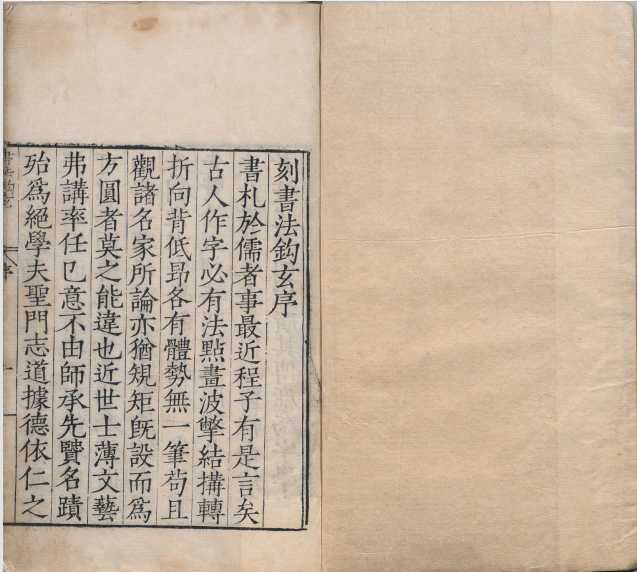 刻書法鈎玄序
書札於儒者事最近程子有是言矣
古人作字必有法點畫波擎結搆轉
折向背低昻各有體勢無一筆茍且
觀諸名家所論亦猶規矩旣設而爲
方圓者莫之能違也近世士薄文藝
弗講率任已意不由師承先賢名蹟
殆爲絕學夫聖門志道據德依仁之
序
一